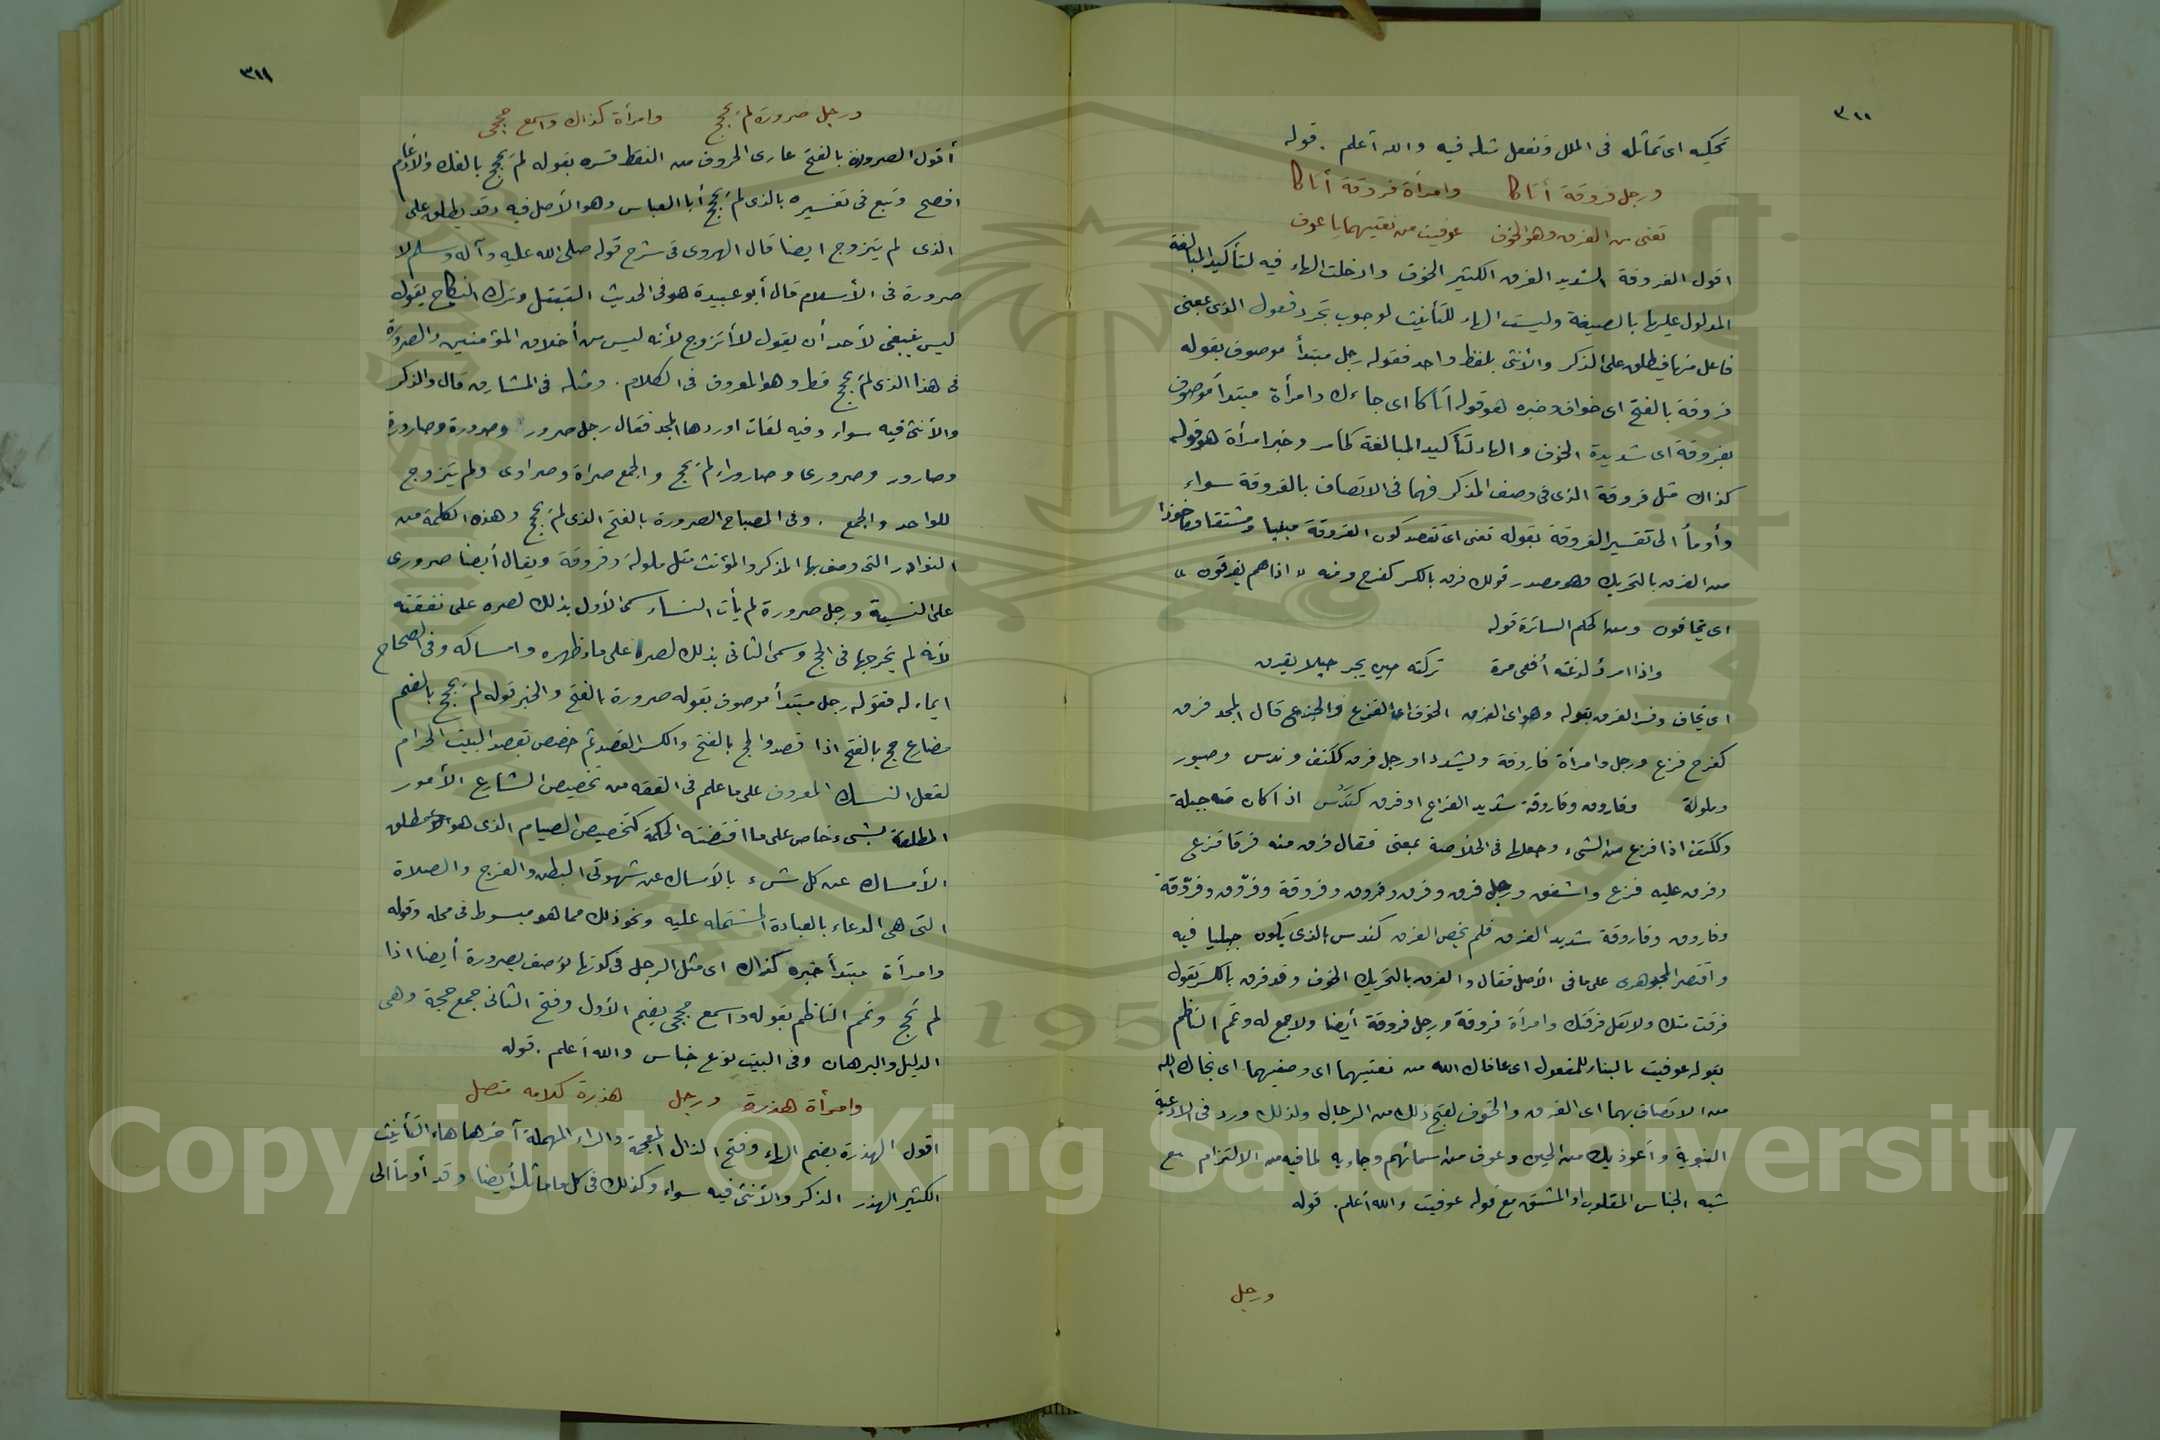 ٣١٠
تحكيه اى تماثله فى الملل وتفعل مثله فيه والله أعلم . قوله
ورجل فروقة أتاكا وامرأة فروقة أتاكا
تعنى من الفرق وهو الخوف عوفيت من نعتيهما يا عوف
اقول الفروقة الشديد الفرق الكثير الخوف وادخلت الهاء فيه لتأكيد المبالغة
المدلول عليها بالصيغة وليست الهاء للتأنيث لوجوب تجرد فعول الذى بمعنى
فاعل منها فيطلق على الذكر والأنثى بلفظ واحد فقوله رجل مبتدأ موصوف بقوله
فروقة بالفتح اى خواف وخبره هو قوله أتاكا اى جاءك وامرأة مبتدأ موصوف
بفروقة اى شديدة الخوف والهاء لتأكيد المبالغة كما مر وخبر امرأة هو قوله
كذاك مثل فروقة الذى فى وصف المذكر فهما فى الاتصاف بالفروقة سواء
وأومأ الى تفسير الفروقة بقوله تعنى اى تقصد كون الفروقة مبنيا ومشتقا ومأخوذا
من الفرق بالتحريك وهو مصدر قولك فرق بالكسر كفرح ومنه " اذا هم يفرقون "
اى يخافون ومن الحكم السائرة قوله
واذا امرؤ لدغته أفعى مرة تركته حين يجر حبلا يفرق
اى يخاف وفسر الفرق بقوله وهو اى الفرق الخوف اى الفزع والجزع قال المجد فرق
كفرح فزع ورجل وامرأة فاروقة ويشدد اورجل فرق ككتف وندس وصبور
وملولة وفاروق وفاروقة شديد الفزاع او فرق كندس اذا كان منه جبلة
وككتف اذا فزع من الشىء وجعلها فى الخلاصة بمعنى فقال فرق منه فرقا فزع
وفرق عليه فزع واشفق ورجل فرق وفرق وفروق وفروقة وفرّوق وفرّوقة
وفاروق وفاروقة شديد الفرق فلم يخص الفرق كندس بالذى يكون جبليا فيه
واقتصر الجوهرى على ما فى الأصل فقال والفرق بالتحريك الخوف وقد فرق بالكسر تقول
فرقت منك ولا تقل فرقتك وامرأة فروقة ورجل فروقة أيضا ولا جمع له وتمم الناظم
بقوله عوفيت بالبناء للمفعول اى عافاك الله من نعتيهما اى وصفيهما اى نجاك الله
من الاتصاف بهما اى الفرق والخوف لقبح ذلك من الرجال ولذلك ورد فى الأدعية
النبوية وأعوذ بك من الجبن وعوف من اسمائهم وجاء به لما فيه من الالتزام مع
شبه الجناس المقلوب او المشتق مع قوله عوفيت والله أعلم . قوله
ورجل
٣١١
ورجل صرورة لم يحجج وامرأة كذاك واسمع حججى
أقول الصرورة بالفتح عارى الحروف من النقط فسره بقوله لم يحجج بالفك والادغام
افصح وتبع فى تفسيره بالذى لم يحجج أبا العباس وهو الأصل فيه وقد يطلق على
الذى لم يتزوج ايضا قال الهروى فى شرح قوله صلى الله عليه وآله وسلم لا
صرورة فى الأسلام قال أبو عبيدة هو فى الحديث التبتل وترك النكاح يقول
ليس ينبغى لأحد أن يقول لا أتزوج لأنه ليس من أخلاق المؤمنين والصرورة
فى هذا الذى لم يحجج قط وهو المعروف فى الكلام . ومثله فى المشارق قال والذكر
والأنثى فيه سواء وفيه لغات اوردها المجد فقال رجل صرور وصرورة وصارورة
وصارور وصرورى وصاروراء لم يحج والجمع صرارة وصرارى ولم يتزوج
للواحد والجمع . وفى المصباح الصرورة بالفتح الذى لم يحج وهذه الكلمة من
النوادر التى وصف بها المذكر والمؤنث مثل ملولة وفروقة ويقال أيضا صرورى
على النسبة ورجل صرورة لم يأت النساء سمى الأول بذلك لصره على نفقته
لأنه لم يخرجها فى الحج وسمى الثانى بذلك لصره على ماء ظهره وامساكه وفى الصحاح
ايماء له فقوله رجل مبتدأ موصوف بقوله صرورة بالفتح والخبر قوله لم يحجج بالضم
مضارع حج بالفتح اذا قصد والحج بالفتح والكسر القصد ثم خصص بقصد البيت الحرام
لفعل النسك المعروف على ما علم فى الفقه من تخصيص الشارع الأمور
المطلقة بشىء خاص على ما اقتضته الحكمة كتخصيص الصيام الذى هو مطلق
الأمساك عن كل شىء بالأمساك عن شهوتى البطن والفرج والصلاة
التى هى الدعاء بالعبادة المشتملة عليه ونحو ذلك مما هو مبسوط فى محله وقوله
وامرأة مبتدأ خبره كذاك اى مثل الرجل فى كونها توصف بصرورة أيضا اذا
لم تحج وتمم الناظم بقوله واسمع حججى بضم الأول وفتح الثانى جمع حجة وهى
الدليل والبرهان وفى البيت نوع جناس والله أعلم . قوله
وامرأة هذرة ورجل هذرة كلامه متصل
اقول الهذرة بضم الهاء وفتح الذال المعجمة والراء المهملة آخرها هاء التأنيث
الكثير الهذر الذكر والأنثى فيه سواء وكذلك فى كل ما ماثله أيضا وقد أومأ الى
Copyright © King Saud University
1957